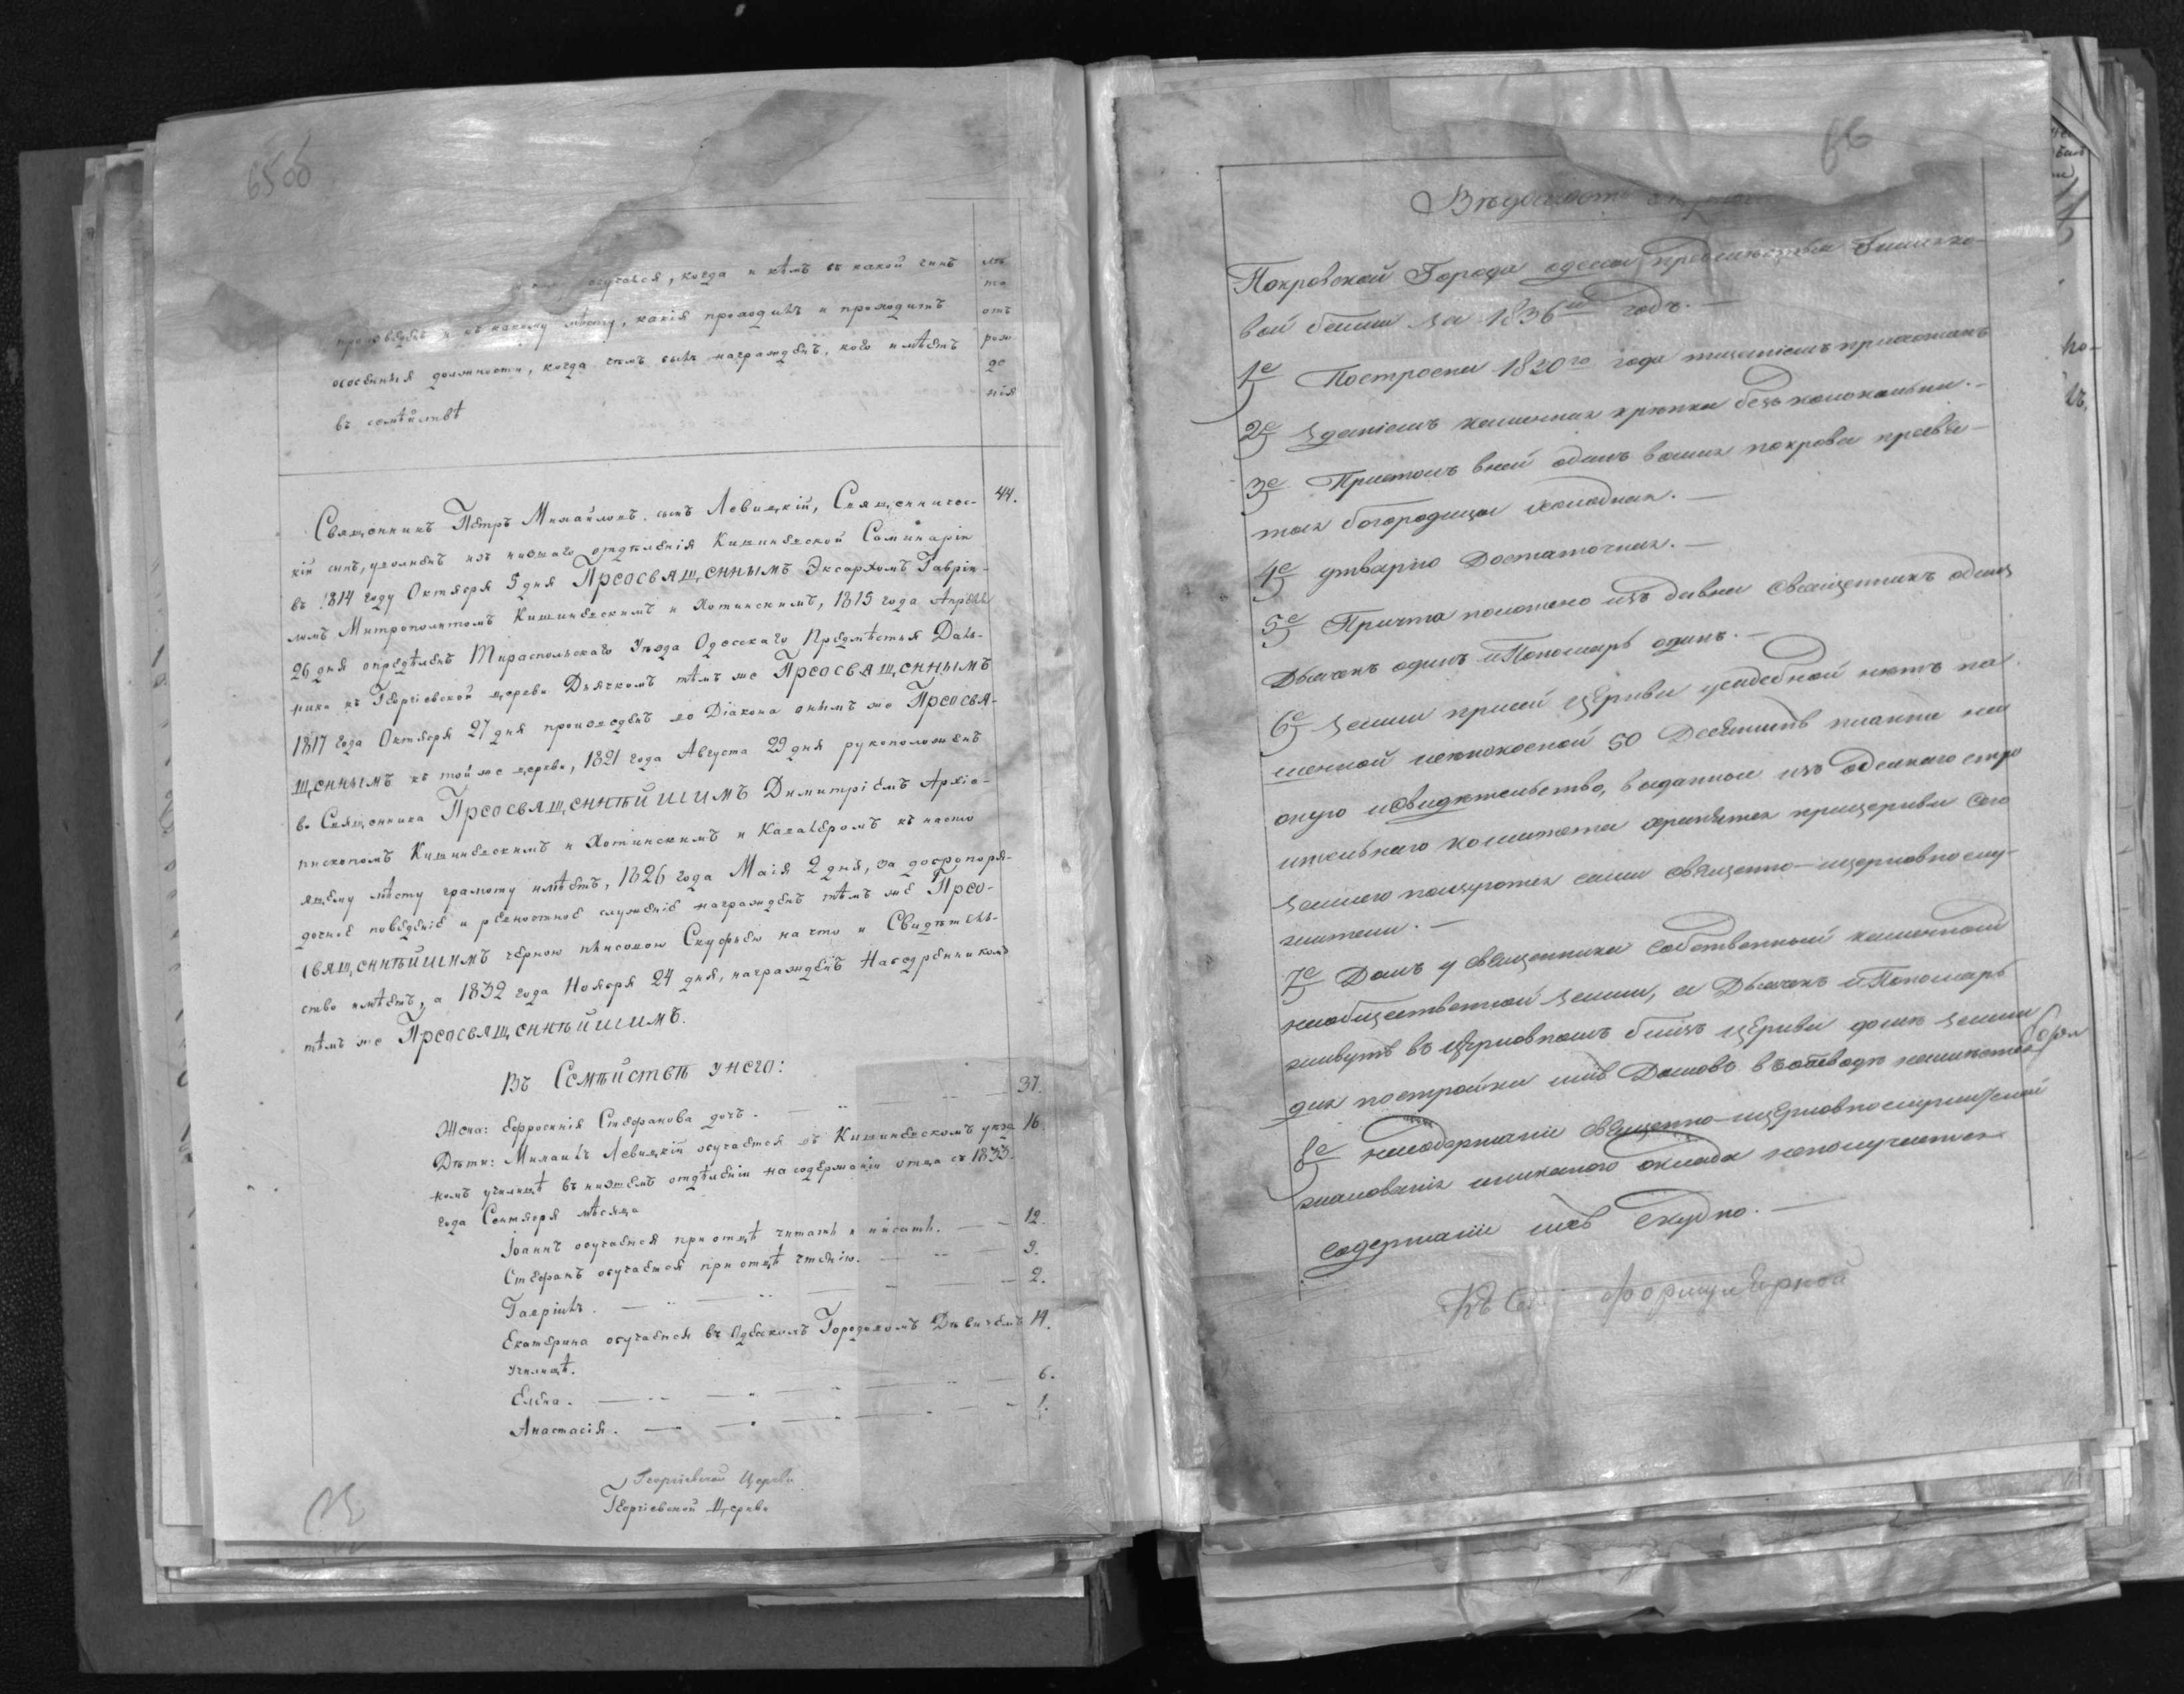 65об
обучался, когда и кѣмъ въ какой чинъ
произведенъ и къ какому мѣсту, какія проходилъ и проходитъ
особенныя должности, когда чемъ былъ награжденъ, кого имѣетъ
въ семѣйствѣ
лѣ
та
отъ
рож
де
нія
Священникъ Петръ Михайловъ сынъ Левицкій, Священничес- 44.
кій сынъ, уволненъ изъ низшаго отдѣленія Кишиневской Семинаріи
въ 1814 году Октября 5 дня Преосвященнымъ Экзархомъ Гаврiи-
ломъ Митрополитомъ Кишиневскимъ и Хотинскимъ, 1815 года Апреля
26 дня опредѣленъ Тираспольскаго Уѣзда Одесскаго Предмѣстья Даль-
ника къ Георгіевской церкви Дьячкомъ тѣмъ же Преосвященнымъ
1817 года Октября 27 дня произведенъ во Діакона онымъ же Преосвя-
щеннымъ къ той же церкви, 1821 года Августа 29 дня рукоположенъ
во Священника Преосвященнѣйшимъ Димитріемъ Архіе-
пископомъ Кишиневскимъ и Хотинскимъ и Кавалеромъ къ насто
ящему мѣсту грамоту имѣетъ, 1826 года Маія 2 дня, за добропоря-
дочное поведеніе и ревностное служеніе награжденъ тѣмъ же Прео-
священнѣйшимъ черною плисовою Скуфьею на что и Свидѣтель-
ство имѣетъ, а 1832 года Ноября 24 дня, награжденъ Набедренникомъ
тѣмъ же Преосвященнѣйшимъ.
Въ Семѣйствѣ у него:
Жена: Ефросинія Стефанова дочь. 37.
Дѣти: Михаилъ Левицкій обучается въ Кишиневскомъ уѣзд 16
номъ училищѣ въ низшемъ отдѣленіи на содержаніи отца съ 1833.
года Сентября мѣсяца
Іоаннъ обучается при отцѣ читать и писать. 12.
Стефанъ обучается при отцѣ чтенію. 9.
Гавріилъ. 2.
Екатерина обучается въ Одескомъ Городовомъ Дѣвичемъ 14.
Училищѣ.
Елена. 6.
Анастасія. 1.
Георгіевской Церкви
Георгіевской Церкви
66
Вѣдомость о церкви
Покровской Города одессы предмѣстья
вой балки за 1836й годъ.
1е Построена 1820го года тщаніемъ прихожанъ
2е Зданіемъ каменная крѣпка безъ колокольни.
3е Престолъ вней одинъ воимя покрова пресвя-
тыя богородицы холодная.
4е утварію Достаточна.
5е Причта положено изъ давна Священникъ одинъ
Дьячекъ одинъ и Пономарь одинъ.
6е Земли присей Церкви усадебной нетъ па
шенной исѣнокосной 50 Десятинъ планъ на
оную исвидѣтельство, выданное изъ одескаго стро
ительнаго комитета хранятся прицеркви Сею
Землею пользуются сами Священно-церковнослу-
жители.
7е Домъ у Священника собственный каменный
наобщественной земли, а Дьячекъ и Пономарь
живутъ въ церковномъ близъ церкви домѣ земли
для постройки имъ Домовъ въ отводѣ
8е насодержаніе Священно-церковнослужителей
жалованія иникакого оклада неполучается
содержаніе ихъ Скудно.
формулярной